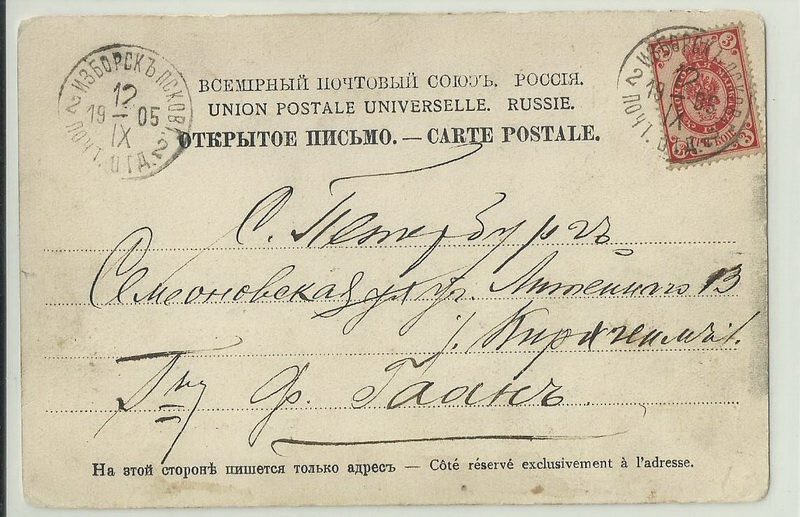 ИЗБОРСКЪ ПСКОВ. Г.
12
19 — 05
IX
2 ПОЧТ. ОТД. 2
3
3
ВСЕМІРНЫЙ ПОЧТОВЫЙ СОЮЗЪ. РОССІЯ.
UNION POSTALE UNIVERSELLE. RUSSIE.
ОТКРЫТОЕ ПИСЬМО. — CARTE POSTALE.
С. Петербургъ
Семеоновская ул уг. Литейнаго 13
Гну Ф. Гаанъ.
На этой сторонѣ пишется только адресъ — Côté réservé exclusivement à l'adresse.